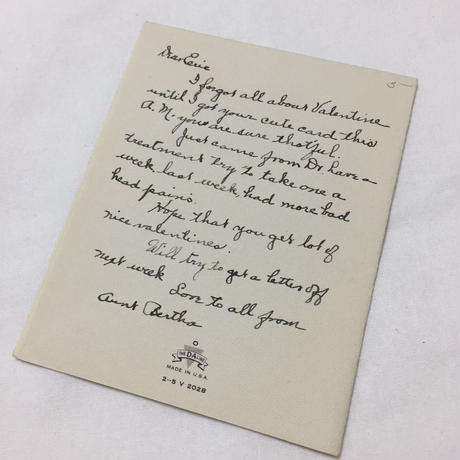 Dear Eric
5-
I forgot all about Valentine
until I got your cute card this
A.M. you are sure thotful.
Just came from Dr. have a
treatment try to take one a
week, last week, had more bad
head pains.
Hope that you get lot of
nice valentines.
Will try to get a letter off
next week Love to all from
Aunt Bertha
THE DA LINE
MADE IN U.S.A.
2-5 V 2028